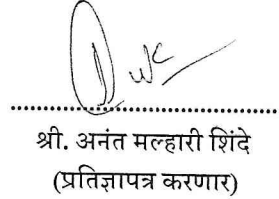 श्री. अनंत मल्हारी शिंदे
(प्रतिज्ञापत्र करणार)